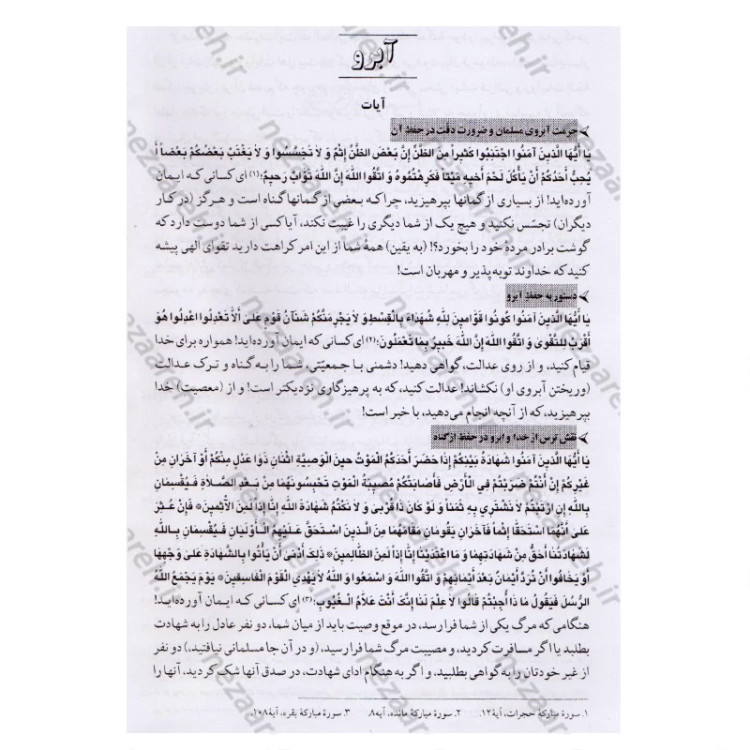 آبرو
آیات
حرمت آبروی مسلمان و ضرورت دقت در حفظ آن
یَا أَیُّهَا الَّذِینَ آمَنُوا اجْتَنِبُوا کَثِیراً مِنَ الظَّنِّ إِنَّ بَعْضَ الظَّنِّ إِثْمٌ وَ لَا تَجَسَّسُوا وَ لَا یَغْتَبْ بَعْضُکُمْ بَعْضاً أَ
یُحِبُّ أَحَدُکُمْ أَنْ یَأْکُلَ لَحْمَ أَخِیهِ مَیْتاً فَکَرِهْتُمُوهُ وَ اتَّقُوا اللهَ إِنَّ اللهَ تَوَّابٌ رَحِیمٌ؛(۱) ای کسانی که ایمان
آورده‌اید! از بسیاری از گمانها بپرهیزید، چرا که بعضی از گمانها گناه است و هرگز (در کار
دیگران) تجسّس نکنید و هیچ یک از شما دیگری را غیبت نکند، آیا کسی از شما دوست دارد که
گوشت برادر مردهٔ خود را بخورد؟! (به یقین) همهٔ شما از این امر کراهت دارید تقوای الهی پیشه
کنید که خداوند توبه‌پذیر و مهربان است!
دستور به حفظ آبرو
یَا أَیُّهَا الَّذِینَ آمَنُوا کُونُوا قَوَّامِینَ لِلهِ شُهَدَاءَ بِالْقِسْطِ وَ لَا یَجْرِمَنَّکُمْ شَنَآنُ قَوْمٍ عَلَی أَلَّا تَعْدِلُوا اعْدِلُوا هُوَ
أَقْرَبُ لِلتَّقْوَی وَ اتَّقُوا اللهَ إِنَّ اللهَ خَبِیرٌ بِمَا تَعْمَلُونَ؛(۲) ای کسانی که ایمان آورده‌اید! همواره برای خدا
قیام کنید، و از روی عدالت، گواهی دهید! دشمنی با جمعیّتی، شما را به گناه و ترک عدالت
(وریختن آبروی او) نکشاند! عدالت کنید، که به پرهیزگاری نزدیکتر است! و از (معصیت) خدا
بپرهیزید، که از آنچه انجام می‌دهید، با خبر است!
نقش ترس از خدا و آبرو در حفظ از گناه
یَا أَیُّهَا الَّذِینَ آمَنُوا شَهَادَةُ بَیْنِکُمْ إِذَا حَضَرَ أَحَدَکُمُ الْمَوْتُ حِینَ الْوَصِیَّةِ اثْنَانِ ذَوَا عَدْلٍ مِنْکُمْ أَوْ آخَرَانِ مِنْ
غَیْرِکُمْ إِنْ أَنْتُمْ ضَرَبْتُمْ فِی الْأَرْضِ فَأَصَابَتْکُمْ مُصِیبَةُ الْمَوْتِ تَحْبِسُونَهُمَا مِنْ بَعْدِ الصَّلَاةِ فَیُقْسِمَانِ
بِاللهِ إِنِ ارْتَبْتُمْ لَا نَشْتَرِی بِهِ ثَمَناً وَ لَوْ کَانَ ذَا قُرْبَی وَ لَا نَکْتُمُ شَهَادَةَ اللهِ إِنَّا إِذاً لَمِنَ الْآثِمِینَ* فَإِنْ عُثِرَ
عَلَی أَنَّهُمَا اسْتَحَقَّا إِثْماً فَآخَرَانِ یَقُومَانِ مَقَامَهُمَا مِنَ الَّذِینَ اسْتَحَقَّ عَلَیْهِمُ الْأَوْلَیَانِ فَیُقْسِمَانِ بِاللهِ
لَشَهَادَتُنَا أَحَقُّ مِنْ شَهَادَتِهِمَا وَ مَا اعْتَدَیْنَا إِنَّا إِذاً لَمِنَ الظَّالِمِینَ* ذَلِکَ أَدْنَی أَنْ یَأْتُوا بِالشَّهَادَةِ عَلَی وَجْهِهَا
أَوْ یَخَافُوا أَنْ تُرَدَّ أَیْمَانٌ بَعْدَ أَیْمَانِهِمْ وَ اتَّقُوا اللهَ وَ اسْمَعُوا وَ اللهُ لَا یَهْدِی الْقَوْمَ الْفَاسِقِینَ* یَوْمَ یَجْمَعُ اللهُ
الرُّسُلَ فَیَقُولُ مَا ذَا أُجِبْتُمْ قَالُوا لَا عِلْمَ لَنَا إِنَّکَ أَنْتَ عَلَّامُ الْغُیُوبِ؛(۳) ای کسانی که ایمان آورده‌اید!
هنگامی که مرگ یکی از شما فرا رسد، در موقع وصیت باید از میان شما، دو نفر عادل را به شهادت
بطلبد یا اگر مسافرت کردید، و مصیبت مرگ شما فرا رسید، (و در آن جا مسلمانی نیافتید،) دو نفر
از غیر خودتان را به گواهی بطلبید، و اگر به هنگام ادای شهادت، در صدق آنها شک کردید، آنها را
۱. سورهٔ مبارکهٔ حجرات، آیهٔ ۱۲. ۲. سورهٔ مبارکهٔ مائده، آیهٔ ۸. ۳. سورهٔ مبارکهٔ بقره، آیهٔ ۱۰۸.
nezaareh.ir